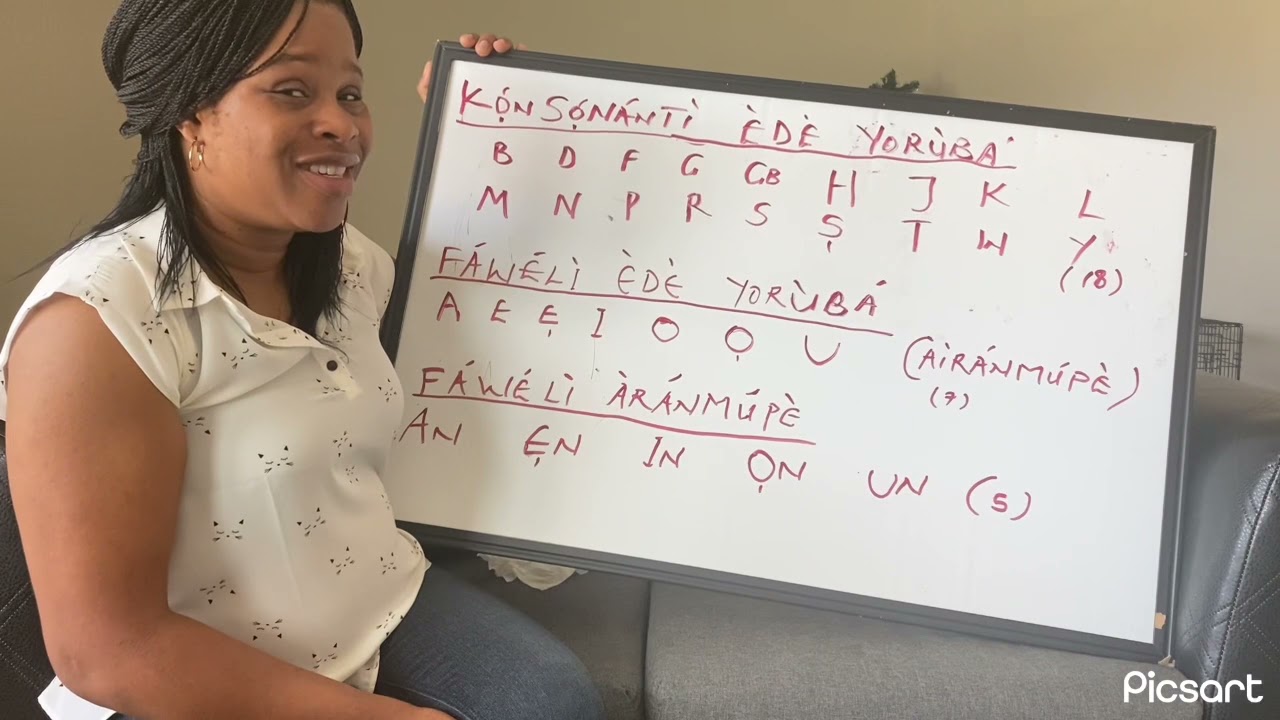 KỌ́NSỌNÁNTÌ ÈDÈ YORÙBÁ
B D F G GB H J K L
M N P R S Ṣ T W Y
(18)
FÁWÉLÌ ÈDÈ YORÙBÁ
A E Ẹ I O Ọ U (AÌRÁNMÚPÈ)
(7)
FÁWÉLÌ ÀRÁNMÚPÈ
AN ẸN IN ỌN UN (5)
Picsart